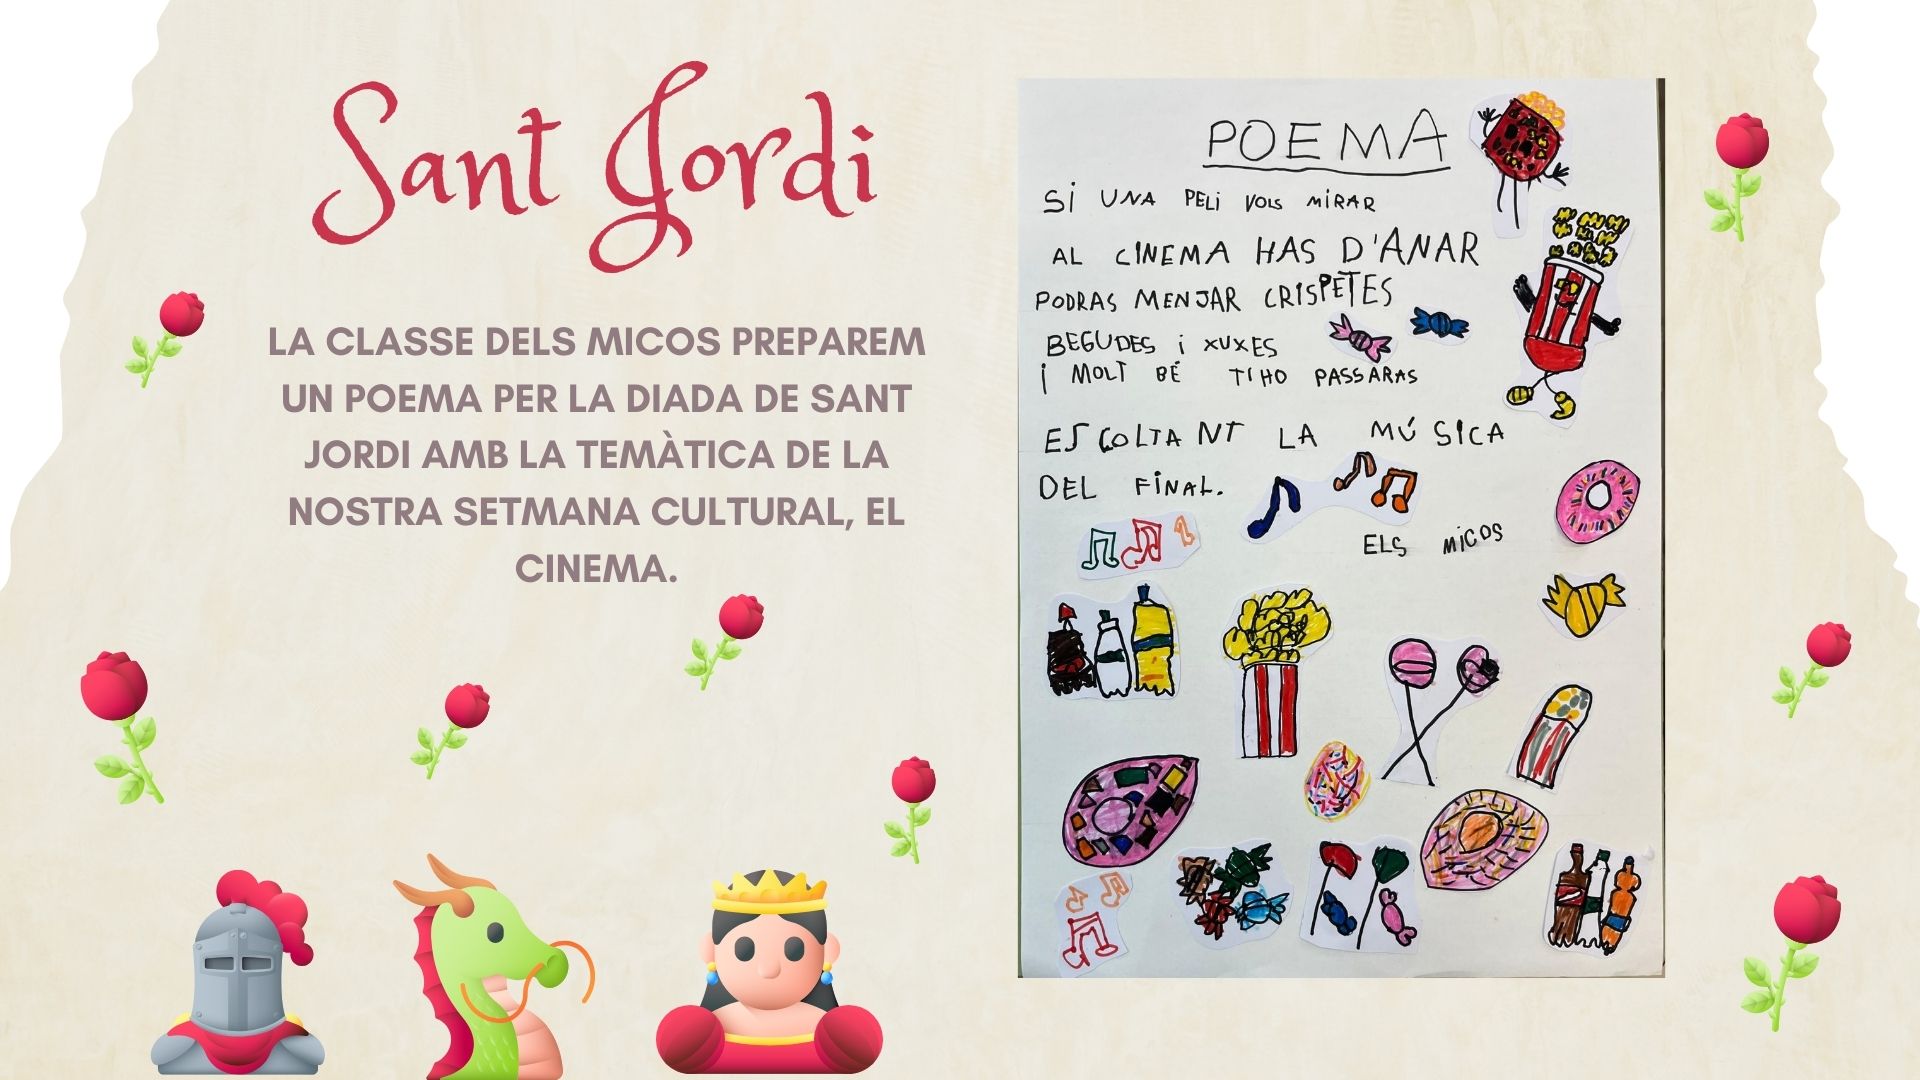 Sant Jordi
LA CLASSE DELS MICOS PREPAREM
UN POEMA PER LA DIADA DE SANT
JORDI AMB LA TEMÀTICA DE LA
NOSTRA SETMANA CULTURAL, EL
CINEMA.
POEMA
Si UNA PELi VOLS MiRAR
AL CINEMA HAS D'ANAR
PODRAS MENJAR CRISPETES
BEGUDES i XUXES
i MOLT BÉ TIHO PASSARAS
ESCOLTANT LA MÚSiCA
DEL FiNAL.
ELS MiCOS